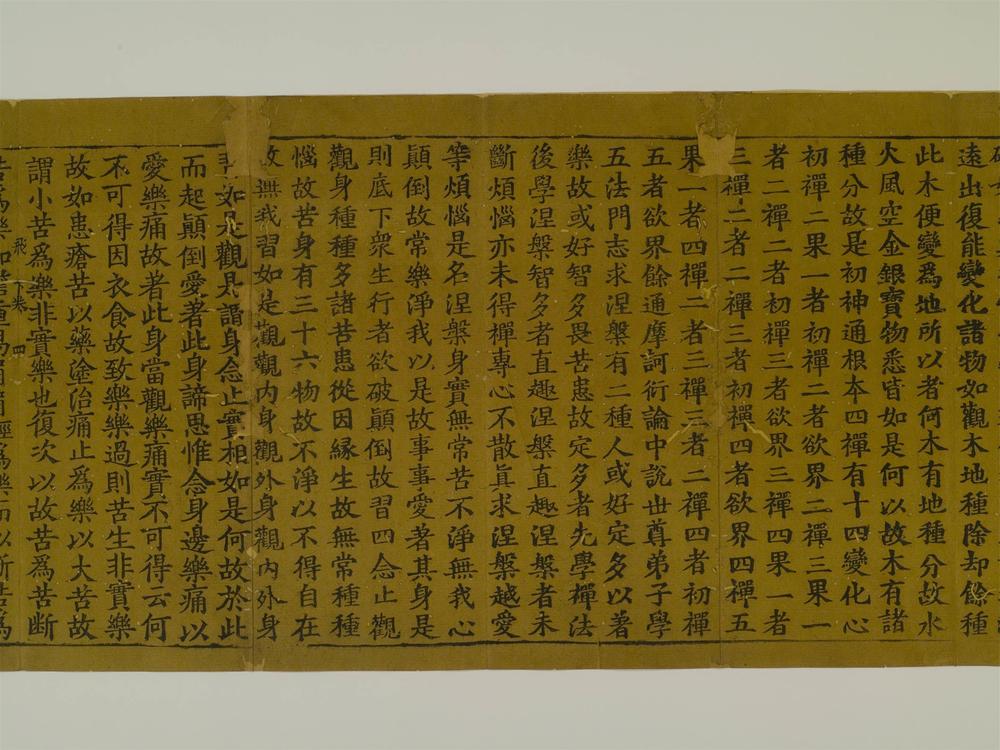 遠出復能變化諸物如觀木地種除却餘種
此木便變為地所以者何木有地種分故水
火風空金銀寶物悉皆如是何以故木有諸
種分故是初神通根本四禪有十四變化心
初禪二果一者初禪二者欲界二禪三果一
者二禪二者初禪三者欲界三禪四果一者
三禪二者二禪三者初禪四者欲界四禪五
果一者四禪二者三禪三者二禪四者初禪
五者欲界餘通摩訶衍論中說世尊弟子學
五法門志求涅槃有二種人或好定多以著
樂故或好智多畏苦患故定多者先學禪法
後學涅槃智多者直趣涅槃直趣涅槃者未
斷煩惱亦未得禪專心不散真求涅槃越愛
等煩惱是名涅槃身實無常苦不淨無我心
顛倒故常樂淨我以是故事事愛著其身是
則底下衆生行者欲破顛倒故習四念止觀
觀身種種多諸苦患從因緣生故無常種種
惱故苦身有三十六物故不淨以不得自在
故無我習如是觀觀內身觀外身觀內外身
如是觀是謂身念止實相如是何故於此
而起顛倒愛著此身諦思惟念身邊樂痛以
愛樂痛故著此身當觀樂痛實不可得云何
不可得因衣食故致樂樂過則苦生非實樂
故如患瘡苦以藥塗治痛止為樂以大苦故
謂小苦為樂非實樂也復次以故苦為苦斷
飛 下卷 四